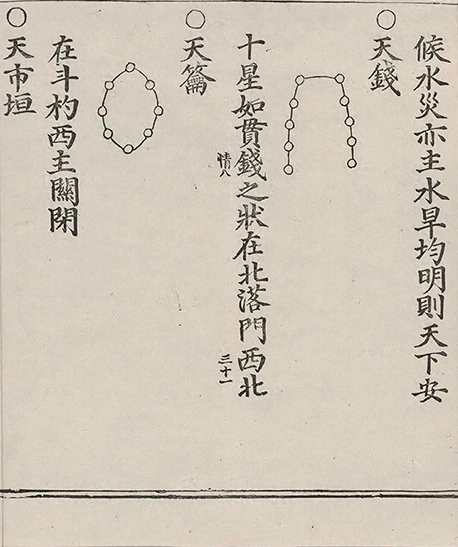 候水災亦主水旱均明則天下安
○天錢
十星如貫錢之狀在北落門西北
情八
三十一
○天籥
在斗杓西主關閉
○天市垣